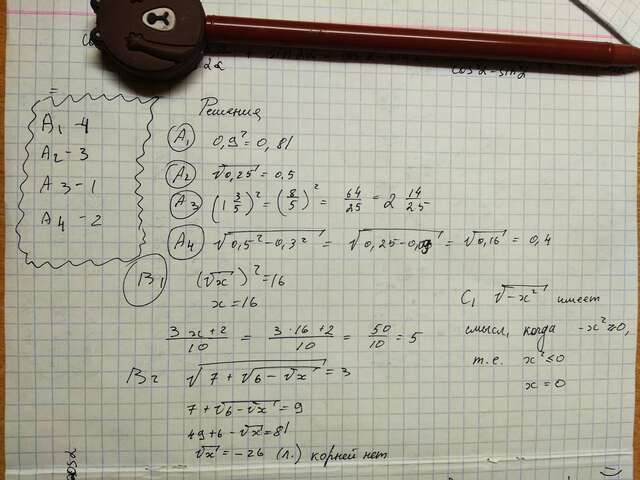 A₁ - 4
A₂ - 3
A 3 - 1
A₄ - 2
Решения
A₁ 0,9² = 0,81
A₂ √0,25 = 0,5
A₃ (1 3/5)² = (8/5)² = 64/25 = 2 14/25
A₄ √(0,5² - 0,3²) = √(0,25 - 0,09) = √0,16 = 0,4
B₁ (√x)² = 16
x = 16
(3x + 2)/10 = (3 · 16 + 2)/10 = 50/10 = 5
B₂ √(7 + √(6 - √x)) = 3
7 + √(6 - √x) = 9
49 + 6 - √x = 81
√x = -26 (л.) корней нет
C₁ √(-x²) имеет
смысл, когда -x² ≥ 0,
т.е. x² ≤ 0
x = 0